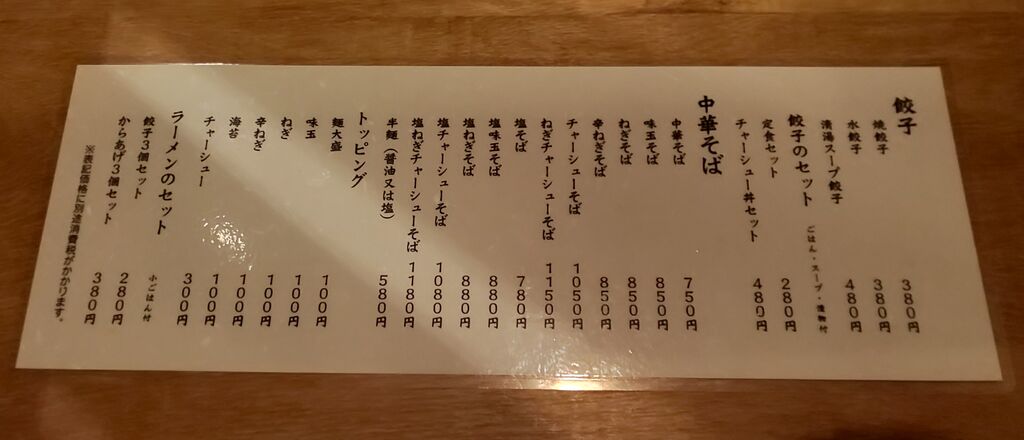 餃子
焼餃子 380円
水餃子 380円
清湯スープ餃子 480円
餃子のセット ごはん・スープ・漬物付
定食セット 280円
チャーシュー丼セット 480円
中華そば
中華そば 750円
味玉そば 850円
ねぎそば 850円
辛ねぎそば 850円
チャーシューそば 1050円
ねぎチャーシューそば 1150円
塩そば 780円
塩味玉そば 880円
塩ねぎそば 880円
塩チャーシューそば 1080円
塩ねぎチャーシューそば 1180円
半麺（醤油又は塩） 580円
トッピング
麺大盛 100円
味玉 100円
ねぎ 100円
辛ねぎ 100円
海苔 100円
チャーシュー 300円
ラーメンのセット 小ごはん付
餃子3個セット 280円
からあげ3個セット 380円
※表記価格に別途消費税がかかります。